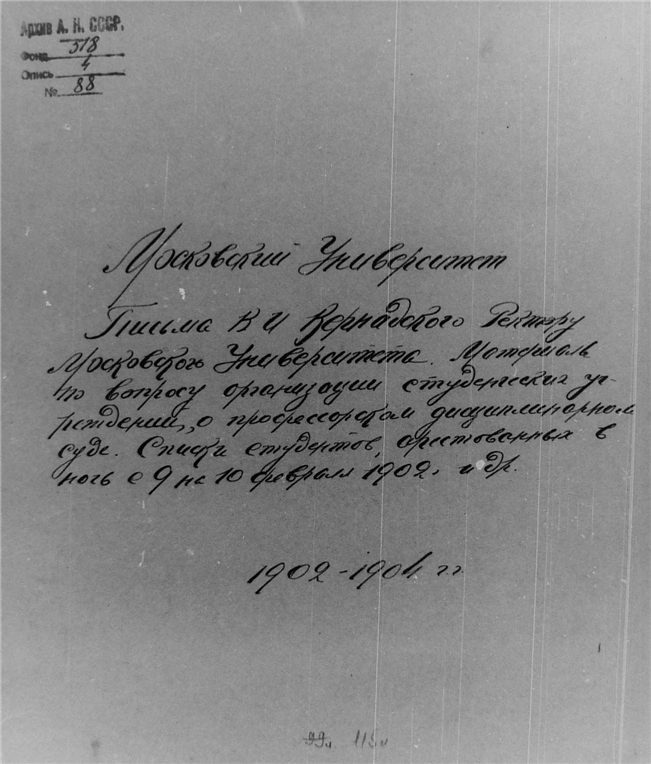 Архив А. Н. СССР.
Фонд 518
Опись 4
№ 88
Московский Университет
Письма В И Вернадского Ректору
Московского Университета. Материалы
по вопросу организации студенческих уч-
реждений, о профессорском дисциплинарном
суде. Списки студентов, арестованных в
ночь с 9 на 10 февраля 1902г. и др.
1902-1904 гг
99л